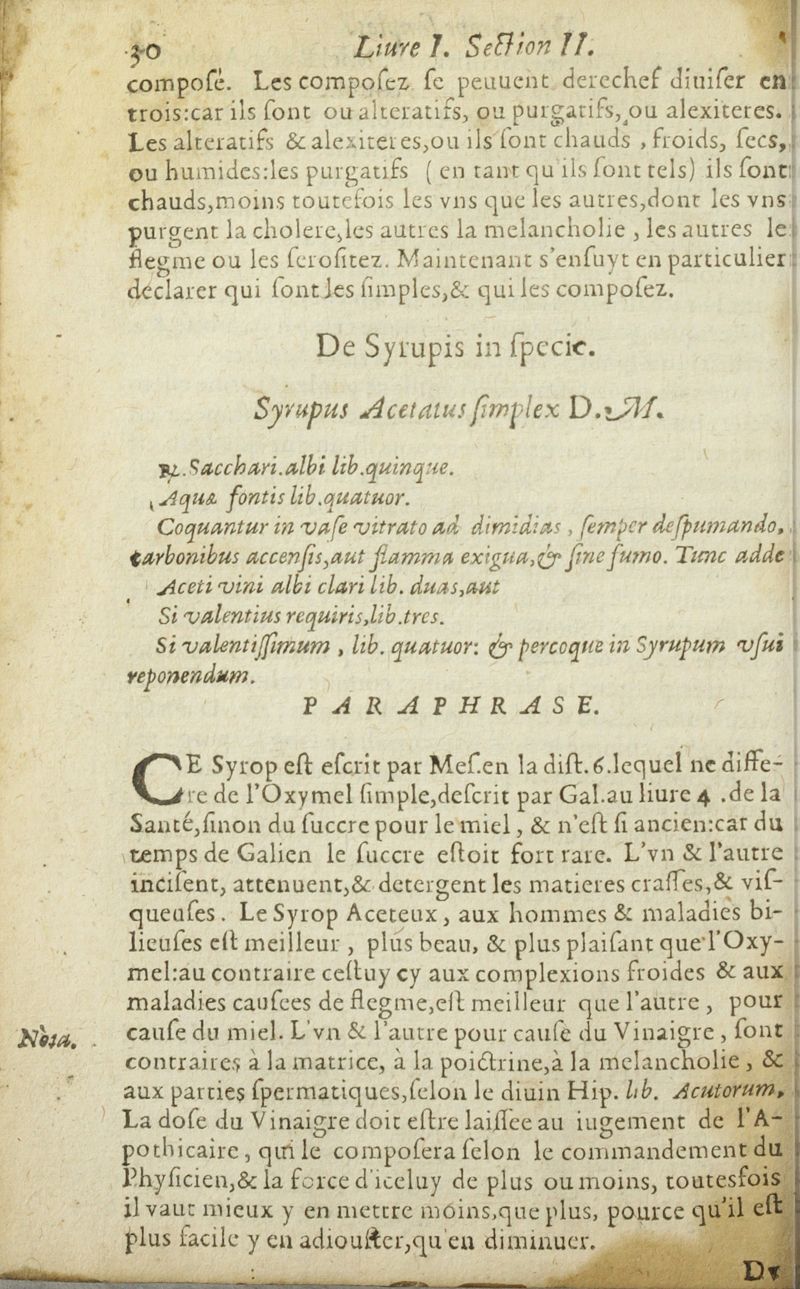 30 Liure I. Section II.
composé. Les composez se peuuent derechef diuiser en
trois:car ils sont ou alteratifs, ou purgatifs, ou alexiteres.
Les alteratifs & alexiteres,ou ils sont chauds , froids, secs,
ou humides:les purgatifs ( en tant qu'ils sont tels) ils sont
chauds,moins toutefois les vns que les autres,dont les vns
purgent la cholere,les autres la melancholie , les autres le
flegme ou les serositez. Maintenant s'ensuyt en particulier
déclarer qui sont les simples,& qui les composez.
De Syrupis in specie.
Syrupus Acetatus simplex D.M.
℞.Sacchari.albi lib.quinque.
Aquæ fontis lib.quatuor.
Coquantur in vase vitrato ad dimidias , semper despumando,
carbonibus accensis,aut flamma exigua,& sine fumo. Tunc adde
Aceti vini albi clari lib. duas,aut
Si valentius requiris,lib.tres.
Si valentissimum , lib. quatuor: & percoque in Syrupum vsui
reponendum.
PARAPHRASE.
CE Syrop est escrit par Mes.en la dist.6.lequel ne diffe-
re de l'Oxymel simple,descrit par Gal.au liure 4 .de la
Santé,sinon du succre pour le miel , & n'est si ancien:car du
temps de Galien le succre estoit fort rare. L'vn & l'autre
incisent, attenuent,& detergent les matieres crasses,& vis-
queuses. Le Syrop Aceteux , aux hommes & maladies bi-
lieuses est meilleur , plus beau, & plus plaisant que l'Oxy-
mel:au contraire cestuy cy aux complexions froides & aux
maladies causees de flegme,est meilleur que l'autre , pour
Nota.
cause du miel. L'vn & l'autre pour cause du Vinaigre , sont
contraires à la matrice, à la poictrine,à la melancholie , &
aux parties spermatiques,selon le diuin Hip. lib. Acutorum,
La dose du Vinaigre doit estre laissee au iugement de l'A-
pothicaire , qui le composera selon le commandement du
Physicien,& la force d'iceluy de plus ou moins, toutesfois
il vaut mieux y en mettre moins,que plus, pource qu'il est
plus facile y en adiouster,qu'en diminuer.